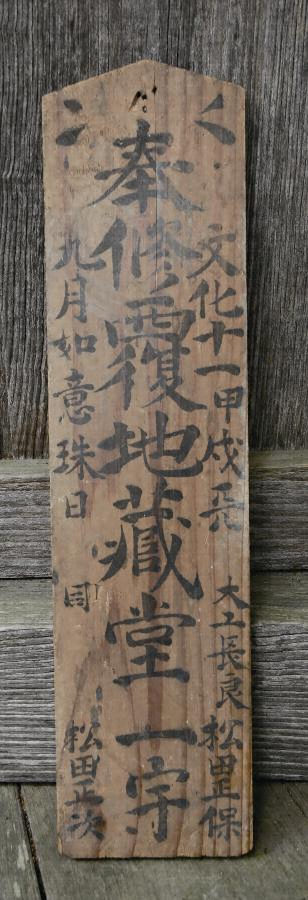 奉修覆地蔵堂一宇
文化十一甲戌天
大工長良
松田正保
九月如意珠日
同
松田正次